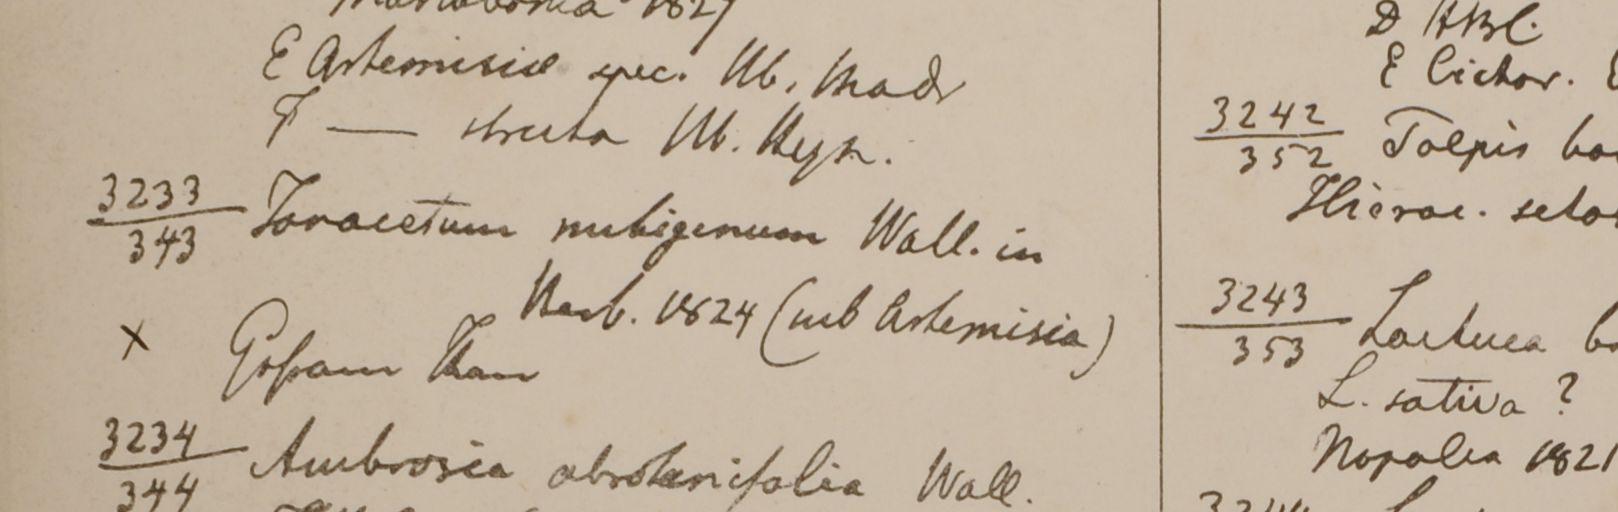 1827
E Artemisiæ spec. Hb. Madr
F — stricta Hb. Heyn.
3233
343
Tanacetum nubigenum Wall. in
Herb. 1824 (sub Artemisia)
x Gossam Than
3234
344
Ambrosia abrotanifolia Wall.
D HBC.
E Cichor.
3242
352
Tolpis
Hierac.
3243
353
Lactuca
L. sativa ?
Napalea 1821
3244